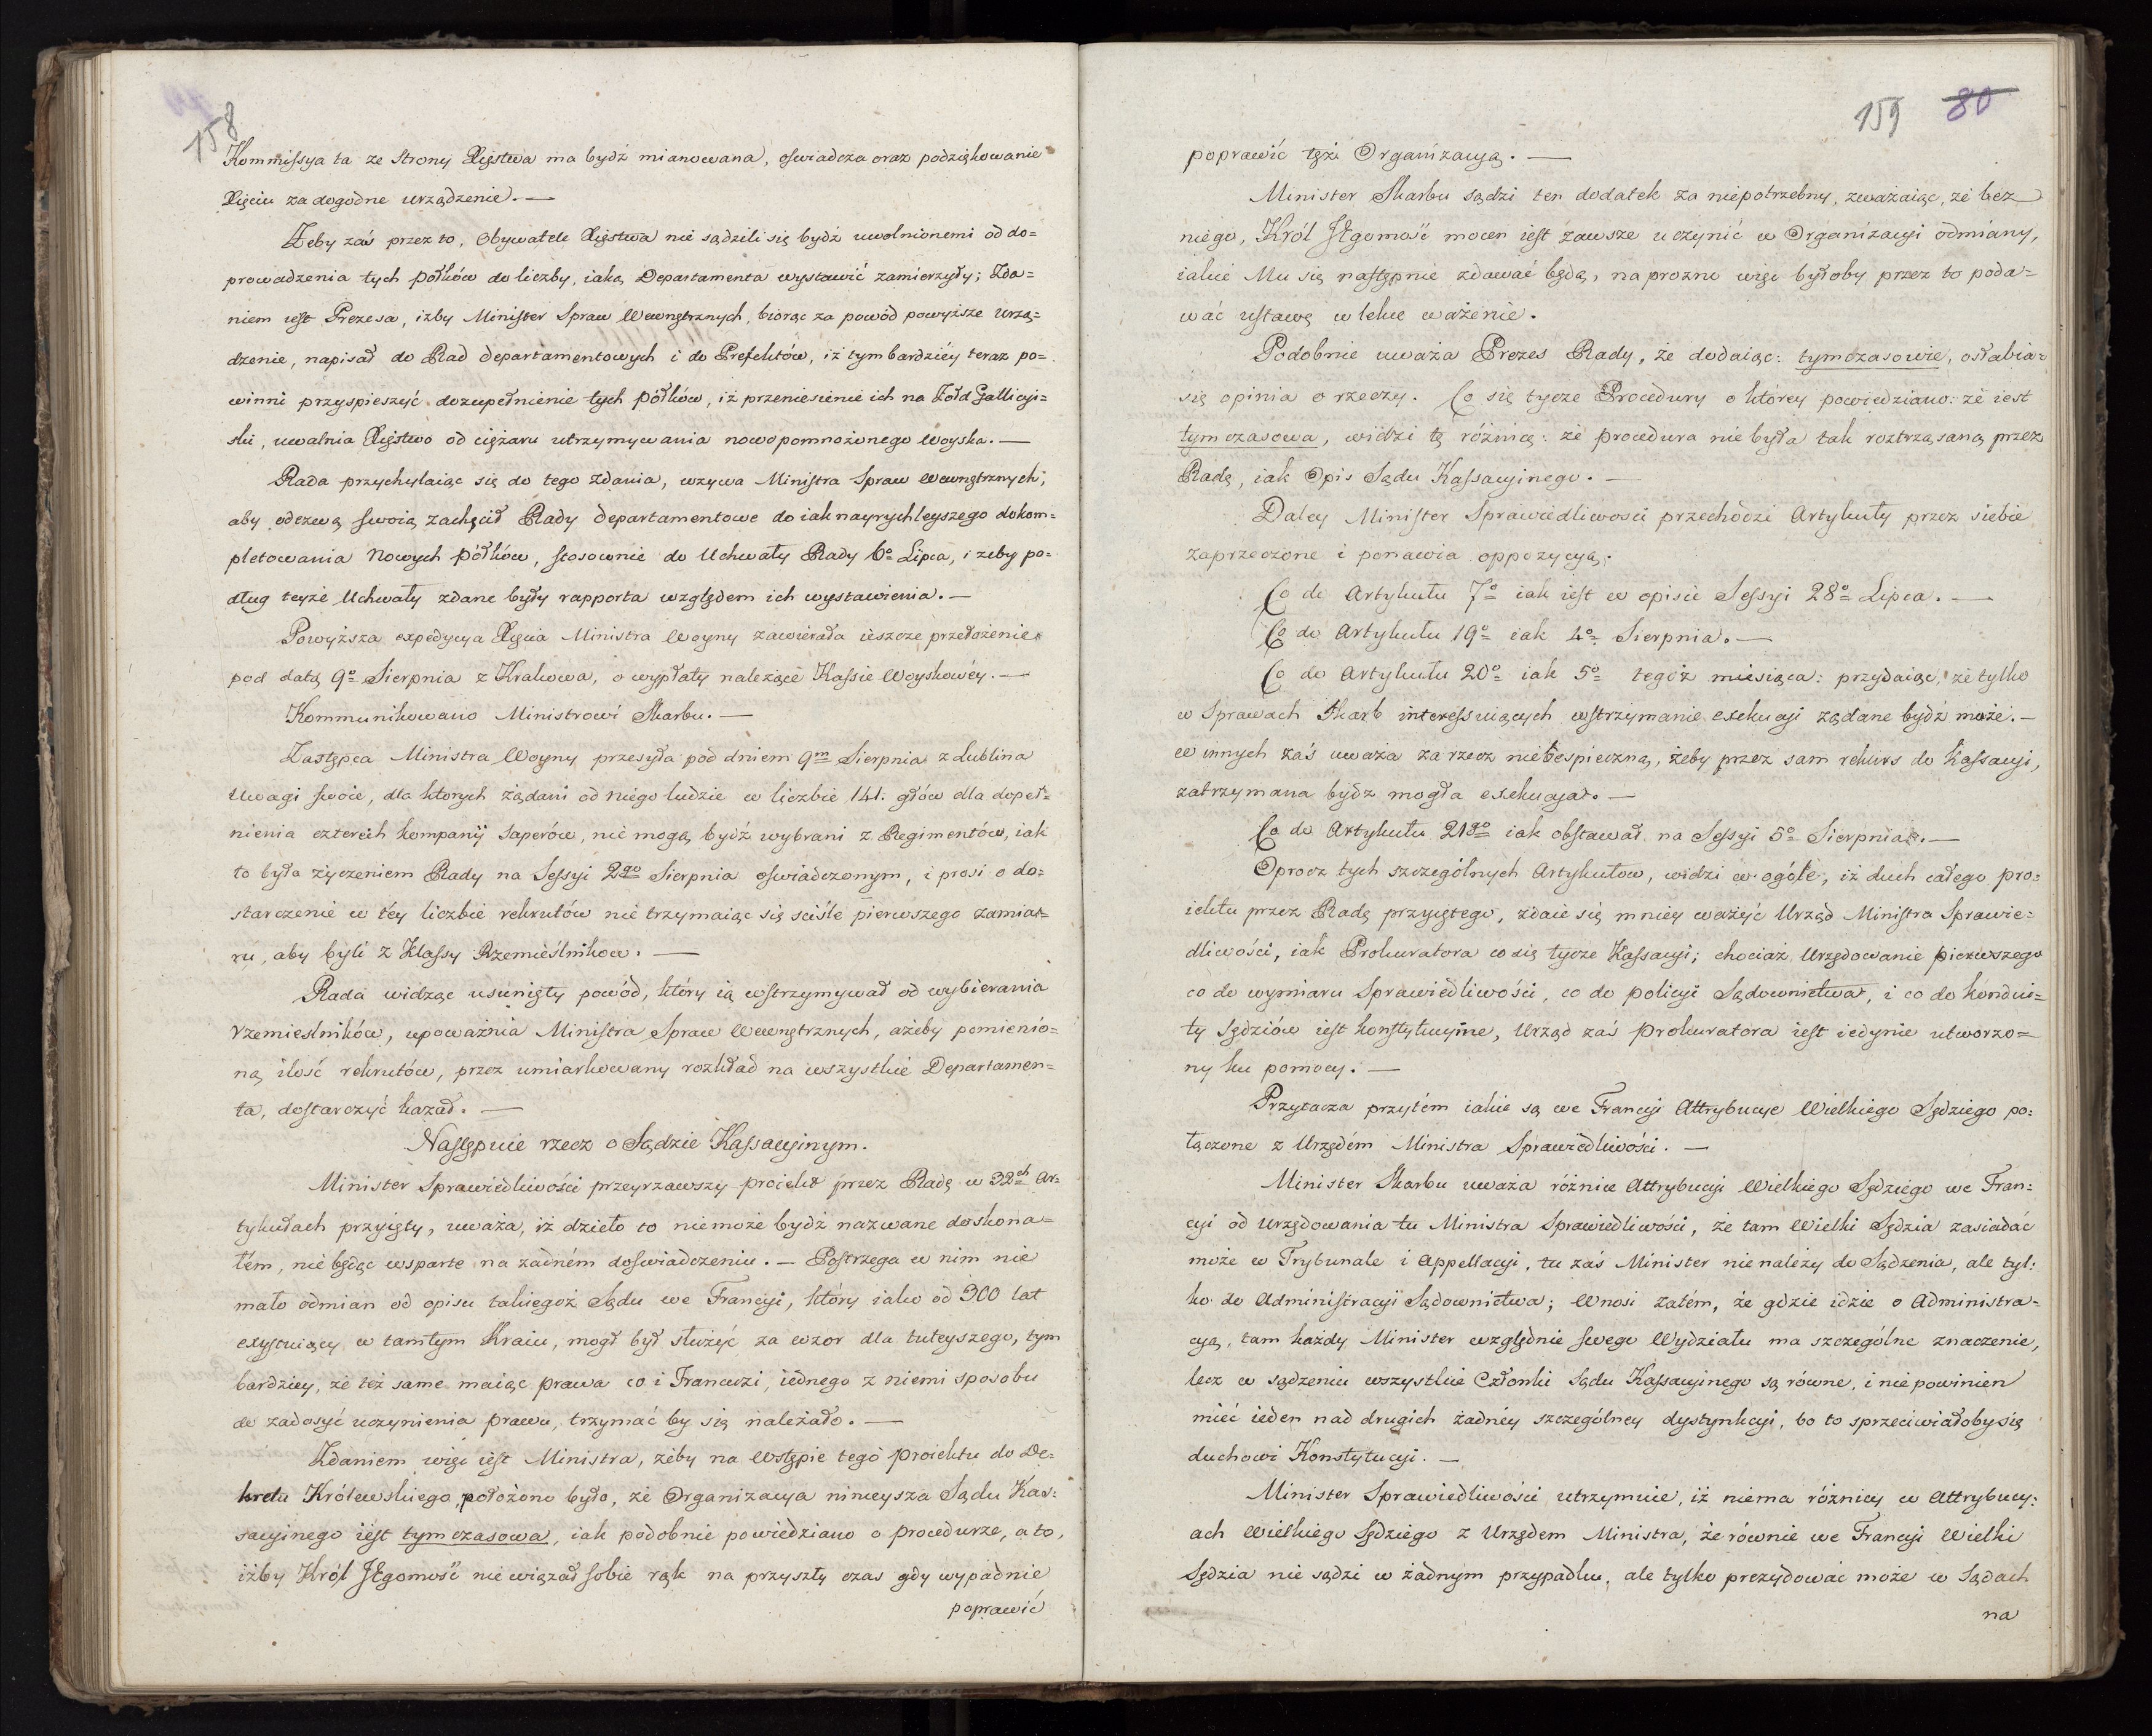 158
Kommissya ta ze strony Xięstwa ma bydź mianowana, oświadcza oraz podziękowanie
Xięciu za dogodne urządzenie. —
Żeby zaś przez to, Obywatele Xięstwa nie sądzili się bydź uwolnionemi od do=
prowadzenia tych połków do liczby, iaką Departamenta wystawić zamierzyły; Zda=
niem iest Prezesa, iżby Minister Spraw Wewnętrznych, biorąc za powód powyższe urzą=
dzenie, napisał do Rad departamentowych i do Prefektów, iż tym bardziéy teraz po=
winni przyspieszyć dozupełnienie tych półków, iż przeniesienie ich na Żołd Gallicyi=
ski, uwalnia Xięstwo od ciężaru utrzymywania nowopomnożonego woyska. —
Rada przychylaiąc się do tego zdania, wzywa Ministra Spraw Wewnętrznych,
aby odezwą swoią zachęcił Rady departamentowe do iaknayrychleyszego dokom=
pletowania Nowych półków, stosownie do Uchwały Rady 6º Lipca, i żeby po=
dług teyże Uchwały zdane były rapporta względem ich wystawienia. —
Powyższa expedycya Xięcia Ministra Woyny zawierała ieszcze przełożenie
pod datą 9º Sierpnia z Krakowa, o wypłaty należące Kassie Woyskowéy. —
Kommunikowano Ministrowi Skarbu. —
Zastępca Ministra Woyny przesyła pod dniem 9m Sierpnia z Lublina
Uwagi swoie, dla ktorych żądani od niego ludzie w liczbie 141. głów dla dopeł=
nienia czterech kompanij Saperów, nie mogą bydź wybrani z Regimentów, iak
to było życzeniem Rady na Sessyi 2go Sierpnia oświadczonym, i prosi o do=
starczenie w téy liczbie rekrutów nie trzymaiąc się ściśle pierwszego zamia=
ru, aby byli z Klassy Rzemieślnikow. —
Rada widząc usunięty powód, który ią wstrzymywał od wybierania
rzemieślników, upoważnia Ministra Spraw Wewnętrznych, ażeby pomienio=
ną ilość rekrutów, przez umiarkowany rozkład na wszystkie Departamen=
ta, dostarczyć kazał. —
Następnie rzecz o Sądzie Kassacyinym.
Minister Sprawiedliwości przeyrzawszy proiekt przez Radę w 32ch Ar=
tykułach przyięty, uważa, iż dzieło to niemoże bydź nazwane doskona=
łém, nie będąc wsparte na żadném doświadczeniu. — Postrzega w nim nie
mało odmian od opisu takiegoż Sądu we Francyi, który iako od 300 lat
exystuiący w tamtym Kraiu, mogł był służyć za wzor dla tuteyszego, tym
bardziey, że też same maiąc prawa co i Francuzi, iednego z niemi sposobu
do zadosyć uczynienia prawu, trzymać by się należało. —
Zdaniem więc iest Ministra, żeby na Wstępie tego proiektu do De=
kretu Królewskiego położono było, że Organizacya ninieysza Sądu Kas=
sacyinego iest tymczasowa, iak podobnie powiedziano o procedurze, a to,
iżby Król JEgomość nie wiązał sobie rąk na przyszły czas gdy wypadnie
poprawić
159 80
poprawić tęż Organizacyą. —
Minister Skarbu sądzi ten dodatek za niepotrzebny, zważaiąc, że bez
niego, Król JEgomość mocen iest zawsze uczynić w Organizacyi odmiany,
iakie Mu się następnie zdawać będą, na prozno więc byłoby przez to poda=
wać ustawę w lekce ważenie.
Podobnie uważa Prezes Rady, że dodaiąc: tymczasowie, osłabia=
się opinia o rzeczy. Co się tycze Procedury o którey powiedziano: że iest
tymczasowa, widzi tę różnicę: że procedura nie była tak roztrząsaną przez
Radę, iak Opis Sądu Kassacyinego. —
Daley Minister Sprawiedliwości przechodzi Artykuły przez siebie
zaprzeczone i ponawia oppozycyą:
Co do Artykułu 7º iak iest w opisie Sessyi 28º Lipca. —
Co do Artykułu 19º iak 4º Sierpnia. —
Co do Artykułu 20º iak 5º tegoż miesiąca: przydaiąc, że tylko
w Sprawach Skarb interessuiących wstrzymanie exekucyi żądane bydź może. —
w innych zaś uważa za rzecz niebespieczną, żeby przez sam rekurs do Kassacyi,
zatrzymana bydź mogła exekucya. —
Co do Artykułu 21go iak obstawał na Sessyi 5º Sierpnia. —
Oprocz tych szczególnych Artykułow, widzi w ogóle, iż duch całego pro=
iektu przez Radę przyiętego, zdaie się mniey ważyć Urząd Ministra Sprawie=
dliwości, iak Prokuratora co się tycze Kassacyi; chociaż Urzędowanie pierwszego
co do wymiaru Sprawiedliwości, co do policyi Sądownictwa, i co do kondui=
ty Sędziów iest konstytucyine, Urząd zaś Prokuratora iest iedynie utworzo=
ny ku pomocy. —
Przytacza przytém iakie są we Francyi Attrybucye Wielkiego Sędziego po=
łączone z Urzędém Ministra Sprawiedliwości. —
Minister Skarbu uważa różnice Attrybucyi Wielkiego Sędziego we Fran=
cyi od Urzędowania tu Ministra Sprawiedliwości, że tam Wielki Sędzia zasiadać
może w Trybunale i Appellacyi, tu zaś Minister nie należy do Sądzenia, ale tyl=
ko do Administracyi Sądownictwa; Wnosi zatém, że gdzie idzie o Administra=
cyą, tam każdy Minister względnie swego Wydziału ma szczególne znaczenie,
lecz w sądzeniu wszystkie Członki Sądu Kassacyinego są równe, i nie powinien
mieć ieden nad drugich żadnéy szczególney dystynkcyi, bo to sprzeciwiałoby się
duchowi Konstytucyi. —
Minister Sprawiedliwości utrzymuie, iż niema różnicy w Attrybucy=
ach Wielkiego Sędziego z Urzędem Ministra, że równie we Francyi Wielki
Sędzia nie sądzi w żadnym przypadku, ale tylko prezydować może w Sądach
na